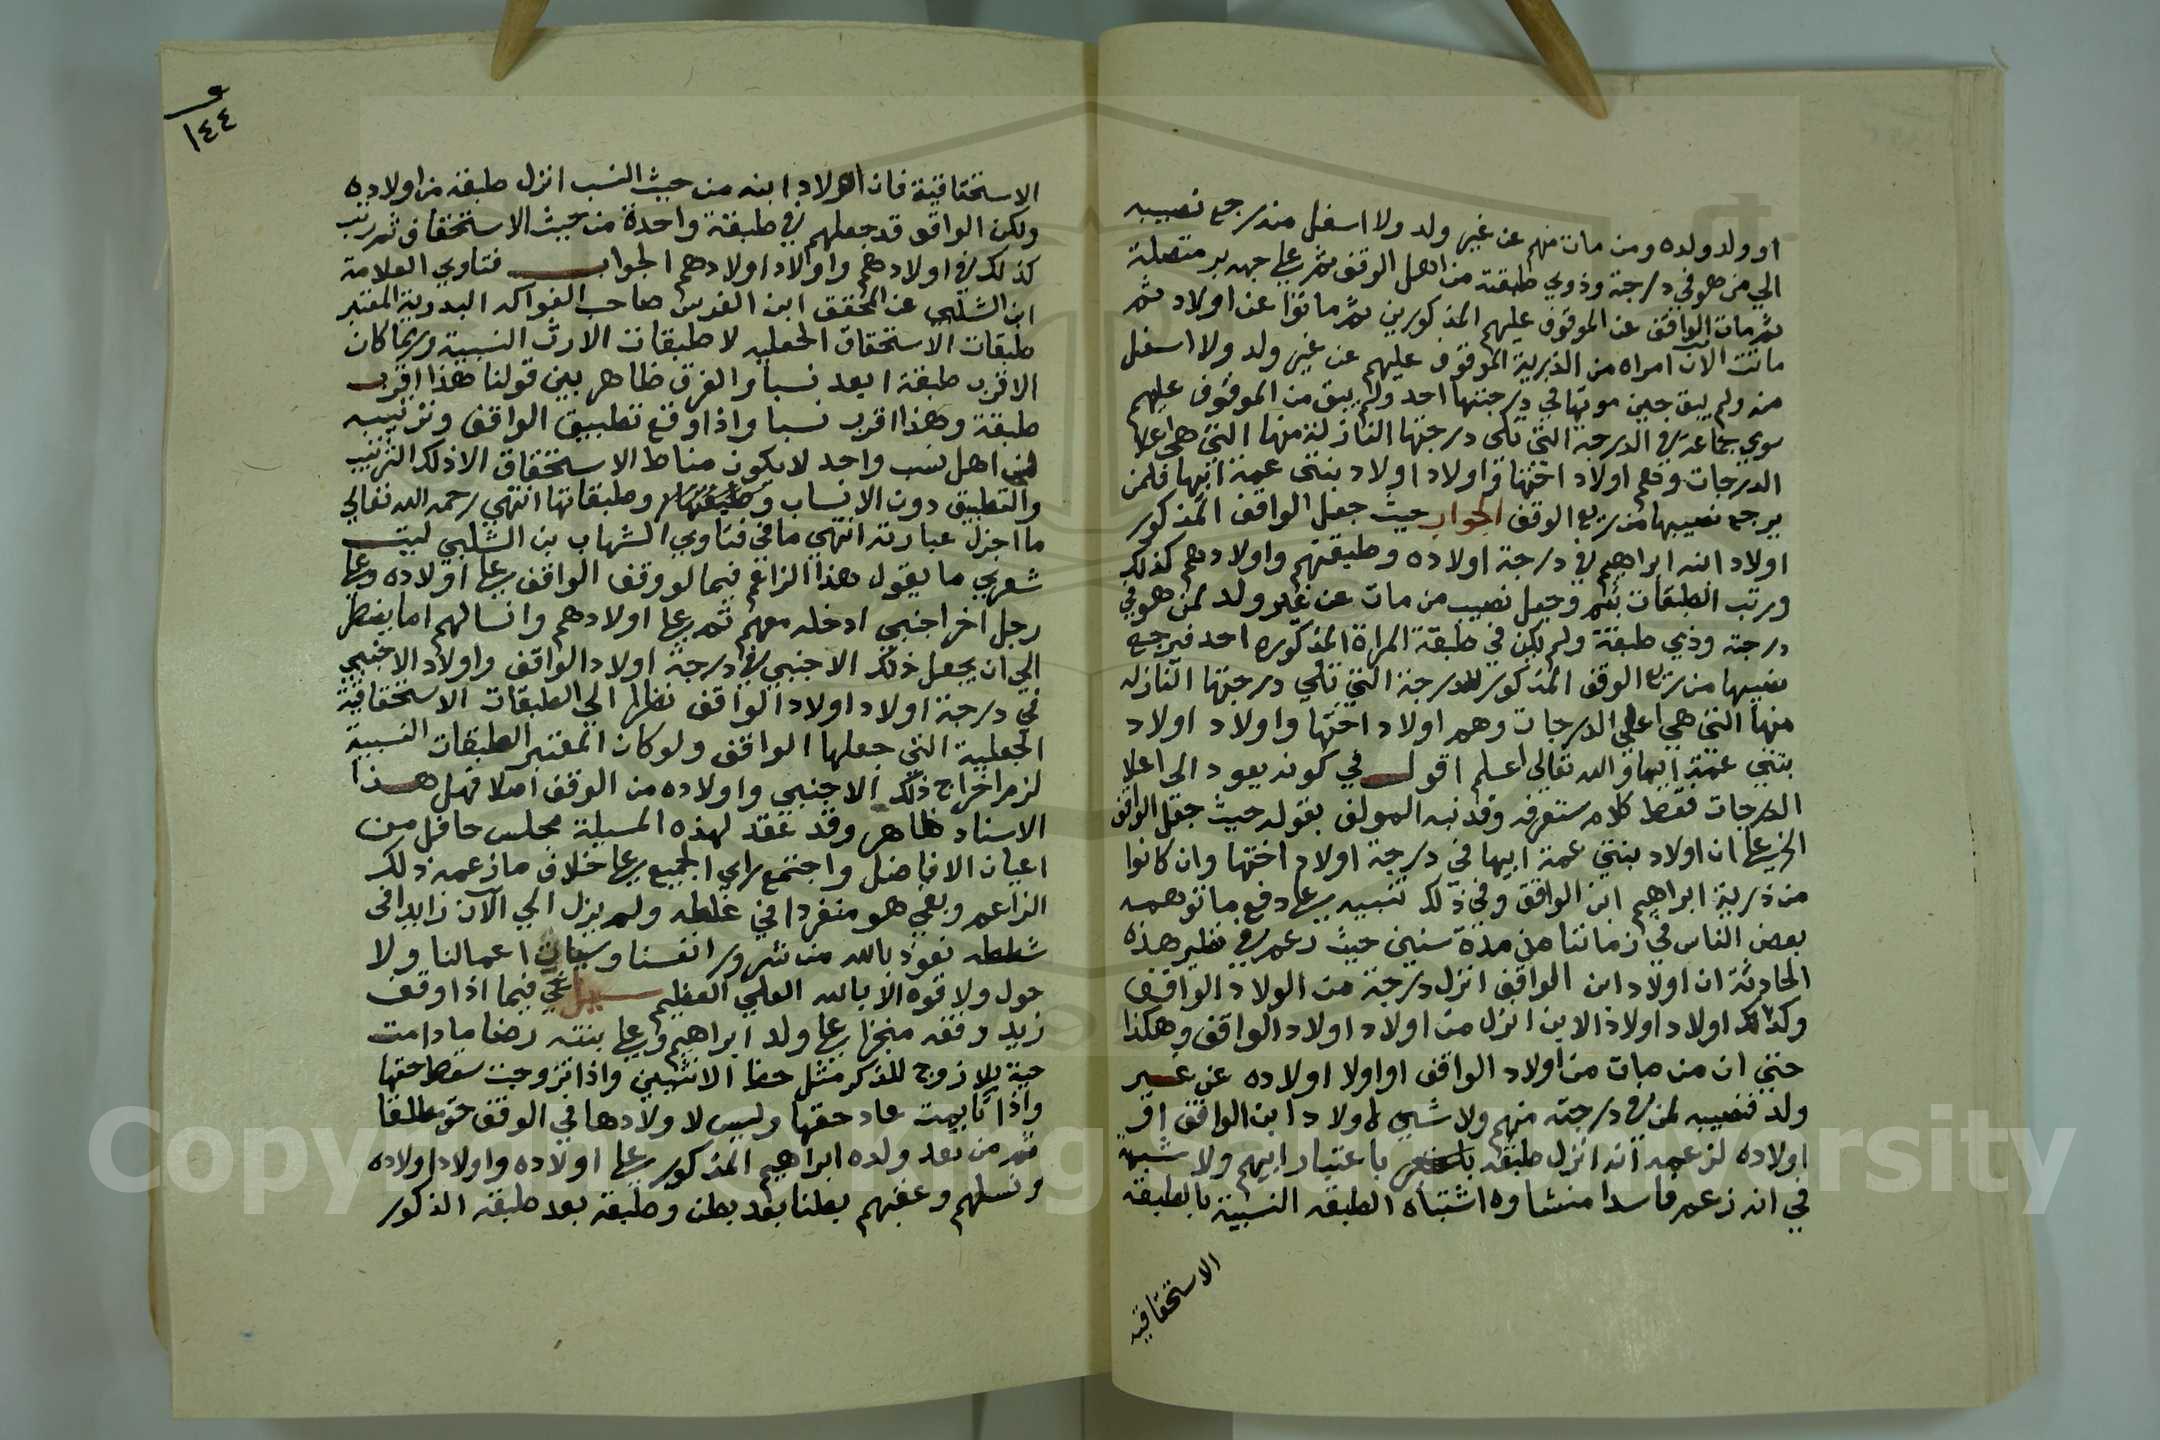 او ولد ولده ومن مات منهم عن غير ولد ولا اسفل منه رجع نصيبه
الي من هو في درجته وذوي طبقته من اهل الوقف ثم علي جهه بر متصلة
ثم مات الواقف عن الموقوف عليهم المذكورين ثم ماتوا عن اولاد ثم
ماتت الآن امراه من الذرية الموقوف عليهم عن غير ولد ولا اسفل
منه ولم يبق حين موتها في درجتها احد ولم يبق من الموقوف عليهم
سوي جماعة في الدرجة التي تلي درجتها النازلة منها التي هي اعلا
الدرجات وهم اولاد اختها واولاد اولاد بنتي عمة ابيها فلمن
يرجع نصيبها من ريع الوقف الجواب حيث جعل الواقف المذكور
اولاد ابنه ابراهيم في درجة اولاده وطبقتهم واولادهم كذلك
ورتب الطبقات بثم وجعل نصيب من مات عن غير ولد لمن هو في
درجته وذي طبقته ولم يكن في طبقة المراة المذكوره احد فيرجع
نصيبها من ريع الوقف المذكور للدرجة التي تلي درجتها النازله
منها التي هي اعلي الدرجات وهم اولاد اختها واولاد اولاد
بنتي عمة ابيها والله تعالي اعلم اقول في كونه يعود الى اعلا
الدرجات فقط كلام ستعرفه وقد نبه المولف بقوله حيث جعل الواقف
الخ علي ان اولاد بنتي عمة ابيها في درجة اولاد اختها وان كانوا
من ذرية ابراهيم ابن الواقف وفي ذلك تنبيه علي دفع ما توهمه
بعض الناس في زماننا من مدة سنين حيث زعم في نظير هذه
الحادثة ان اولاد ابن الواقف انزل درجة من اولاد الواقف
وكذلك اولاد اولاد الابن انزل من اولاد اولاد الواقف وهكذا
حتي ان من مات من اولاد الواقف او اولاد اولاده عن غير
ولد فنصيبه لمن في درجته منهم ولا شي لاولاد ابن الواقف او
اولاده لزعمه انه انزل طبقه باعتبار ابيهم ولا شبهة
في انه زعم فاسد منشاوه اشتباه الطبقه النسبية بالطبقة
الاستحقاقيه
١٤٤
الاستحقاقية فان اولاد ابنه من حيث النسب انزل طبقة من اولاده
ولكن الواقف قد جعلهم في طبقة واحدة من حيث الاستحقاق ثم رتب
كذلك في اولادهم واولاد اولادهم الجواب فتاوي العلامة
ابن الشلبي عن المحقق ابن الغرس صاحب الفواكه البدرية المعتبر
طبقات الاستحقاق الجعليه لا طبقات الارث النسبية وربما كان
الاقرب طبقة ابعد نسبا والفرق ظاهر بين قولنا هذا اقرب
طبقة وهذا اقرب نسبا واذا وقع تطبيق الواقف وترتيبه
اهل نسب واحد لا يكون مناط الاستحقاق الا ذلك الترتيب
والتطبيق دون الانساب وطبقاتها انتهي رحمه الله تعالي
ما اجزل عبارته انتهي ما في فتاوي الشهاب بن الشلبي ليت
شعري ما يقول هذا الزاعم فيما لو وقف الواقف علي اولاده وعلي
رجل اخر اجنبي ادخله معهم ثم علي اولادهم وانسالهم اما يضطر
الي ان يجعل ذلك الاجنبي في درجة اولاد الواقف واولاد الاجنبي
في درجة اولاد اولاد الواقف نظرا الي الطبقات الاستحقاقية
الجعلية التي جعلها الواقف ولو كان المعتبر الطبقات النسبية
لزم اخراج ذلك الاجنبي واولاده من الوقف اصلا فهل هذا
الاسناد ظاهر وقد عقد لهذه المسيلة مجلس حافل من
اعيان الافاضل واجتمع راي الجميع علي خلاف ما زعمه ذلك
الزاعم وبقي هو منفردا في غلطه ولم يزل الي الآن زايدا في
شططه نعوذ بالله من شرور انفسنا وسيات اعمالنا ولا
حول ولا قوه الا بالله العلي العظيم سيل في فيما اذا وقف
زيد وقفه منجزا علي ولد ابراهيم وعلي بنته رضا ما دامت
حية بلا زوج للذكر مثل حظ الانثيين واذا تزوجت سقط حقها
واذا تايمت عاد حقها وليس لاولادها في الوقف حق مطلقا
ثم من بعد ولده ابراهيم المذكور علي اولاده واولاد اولاده
ونسلهم وعقبهم بطنا بعد بطن وطبقه بعد طبقه الذكور
Copyright © King Saud University